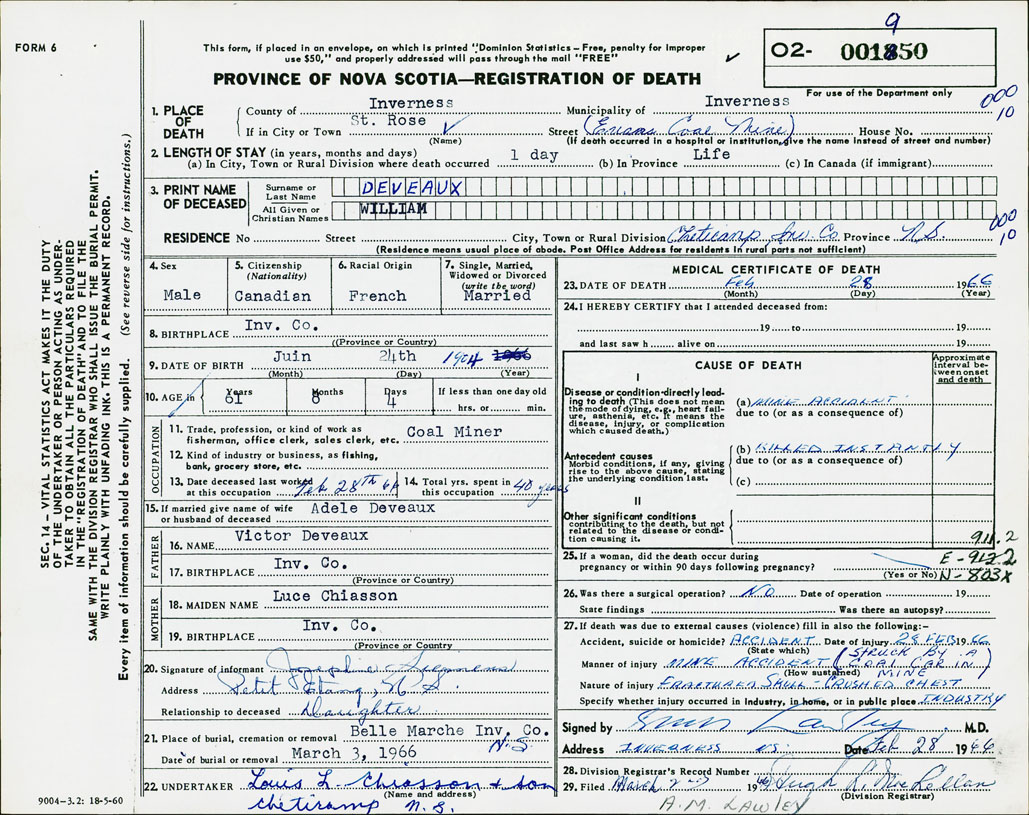 FORM 6
This form, if placed in an envelope, on which is printed "Dominion Statistics – Free, penalty for improper
use $50," and properly addressed will pass through the mail "FREE"
PROVINCE OF NOVA SCOTIA—REGISTRATION OF DEATH
9
O2- 001850
For use of the Department only
000
10
1. PLACE OF DEATH
County of Inverness Municipality of Inverness
If in City or Town St. Rose Street (Evans Coal Mine) House No.
(Name) (If death occurred in a hospital or institution, give the name instead of street and number)
2. LENGTH OF STAY (in years, months and days)
(a) In City, Town or Rural Division where death occurred 1 day (b) In Province Life (c) In Canada (if immigrant)
3. PRINT NAME OF DECEASED
Surname or Last Name DEVEAUX
All Given or Christian Names WILLIAM
000
10
RESIDENCE No Street City, Town or Rural Division Cheticamp Inv Co Province N.S.
(Residence means usual place of abode. Post Office Address for residents in rural parts not sufficient)
4. Sex Male
5. Citizenship (Nationality) Canadian
6. Racial Origin French
7. Single, Married, Widowed or Divorced (write the word) Married
8. BIRTHPLACE Inv. Co.
(Province or Country)
9. DATE OF BIRTH Juin 24th 1904 1966
(Month) (Day) (Year)
10. AGE in Years 61 Months 8 Days 4 If less than one day old
hrs. or min.
OCCUPATION
11. Trade, profession, or kind of work as
fisherman, office clerk, sales clerk, etc. Coal Miner
12. Kind of industry or business, as fishing,
bank, grocery store, etc.
13. Date deceased last worked
at this occupation Feb 28TH 66
14. Total yrs. spent in
this occupation 40 years
15. If married give name of wife
or husband of deceased Adele Deveaux
FATHER
16. NAME Victor Deveaux
17. BIRTHPLACE Inv. Co.
(Province or Country)
MOTHER
18. MAIDEN NAME Luce Chiasson
19. BIRTHPLACE Inv. Co.
(Province or Country)
20. Signature of informant Josephine
Address Petit Etang, N.S.
Relationship to deceased Daughter
21. Place of burial, cremation or removal Belle Marche Inv. Co.
N.S
Date of burial or removal March 3, 1966
22. UNDERTAKER Louis L. Chiasson + son
(Name and address)
Cheticamp N.S.
MEDICAL CERTIFICATE OF DEATH
23. DATE OF DEATH Feb 28 1966
(Month) (Day) (Year)
24. I HEREBY CERTIFY that I attended deceased from:
19 to 19
and last saw h alive on 19
CAUSE OF DEATH
Approximate interval between onset and death
I
Disease or condition directly leading to death (This does not mean the mode of dying, e.g., heart failure, asthenia, etc. It means the disease, injury, or complication which caused death.)
(a) MINE ACCIDENT
due to (or as a consequence of)
Antecedent causes
Morbid conditions, if any, giving rise to the above cause, stating the underlying condition last.
(b) KILLED INSTANTLY
due to (or as a consequence of)
(c)
II
Other significant conditions
contributing to the death, but not related to the disease or condition causing it.
911.2
E-912.2
N-803X
25. If a woman, did the death occur during
pregnancy or within 90 days following pregnancy?
(Yes or No)
26. Was there a surgical operation? NO Date of operation 19
State findings Was there an autopsy?
27. If death was due to external causes (violence) fill in also the following:-
Accident, suicide or homicide? ACCIDENT Date of injury 28 FEB 1966
(State which)
Manner of injury MINE ACCIDENT (STRUCK BY A COAL CAR IN MINE)
(How sustained)
Nature of injury FRACTURED SKULL - CRUSHED CHEST
Specify whether injury occurred in industry, in home, or in public place INDUSTRY
Signed by M.D.
Address INVERNESS NS. Date Feb 28 1966
28. Division Registrar's Record Number
29. Filed March 2nd 1966 Hugh L. MacLellan
(Division Registrar)
A.M. LAWLEY
SEC. 14 – VITAL STATISTICS ACT MAKES IT THE DUTY
OF THE UNDERTAKER OR PERSON ACTING AS UNDER-
TAKER TO OBTAIN ALL THE PARTICULARS REQUIRED
IN THE "REGISTRATION OF DEATH" AND TO FILE THE
SAME WITH THE DIVISION REGISTRAR WHO SHALL ISSUE THE BURIAL PERMIT.
WRITE PLAINLY WITH UNFADING INK. THIS IS A PERMANENT RECORD.
Every item of information should be carefully supplied. (See reverse side for instructions.)
9004-3.2: 18-5-60